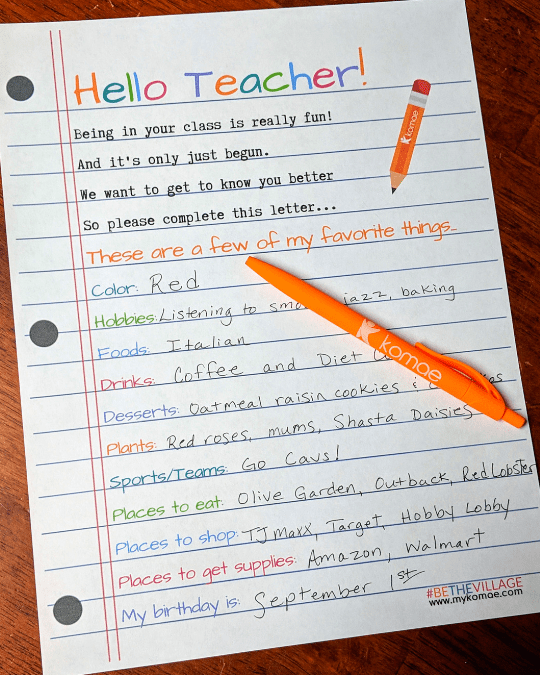 Hello Teacher!
Being in your class is really fun!
And it's only just begun.
We want to get to know you better
So please complete this letter...
komae
These are a few of my favorite things...
Color: Red
Hobbies: Listening to jazz, baking
Foods: Italian
Drinks: Coffee and Diet
komae
Desserts: Oatmeal raisin cookies &
Plants: Red roses, mums, Shasta Daisies
Sports/Teams: Go Cavs!
Places to eat: Olive Garden, Outback, Red Lobster
Places to shop: TJ Maxx, Target, Hobby Lobby
Places to get supplies: Amazon, Walmart
My birthday is: September 1st
#BETHEVILLAGE
www.mykomae.com